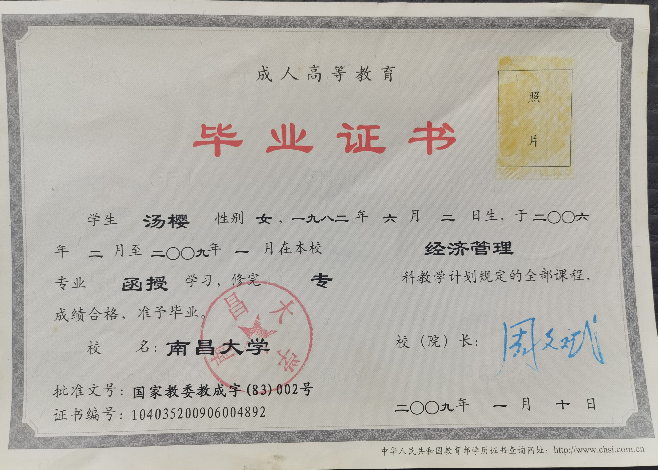 成人高等教育
毕业证书
照
片
学生 汤樱 性别 女，一九八二年 六 月 二 日生，于二〇〇六
年 二 月至二〇〇九年 一 月在本校 经济管理
专业 函授 学习，修完 专 科教学计划规定的全部课程，
成绩合格，准予毕业。
校 名：南昌大学 校（院）长：周文斌
南昌大学
批准文号：国家教委教成字(83)002号
证书编号：104035200906004892 二〇〇九年 一 月 十 日
中华人民共和国教育部学历证书查询网址：http://www.chsi.com.cn